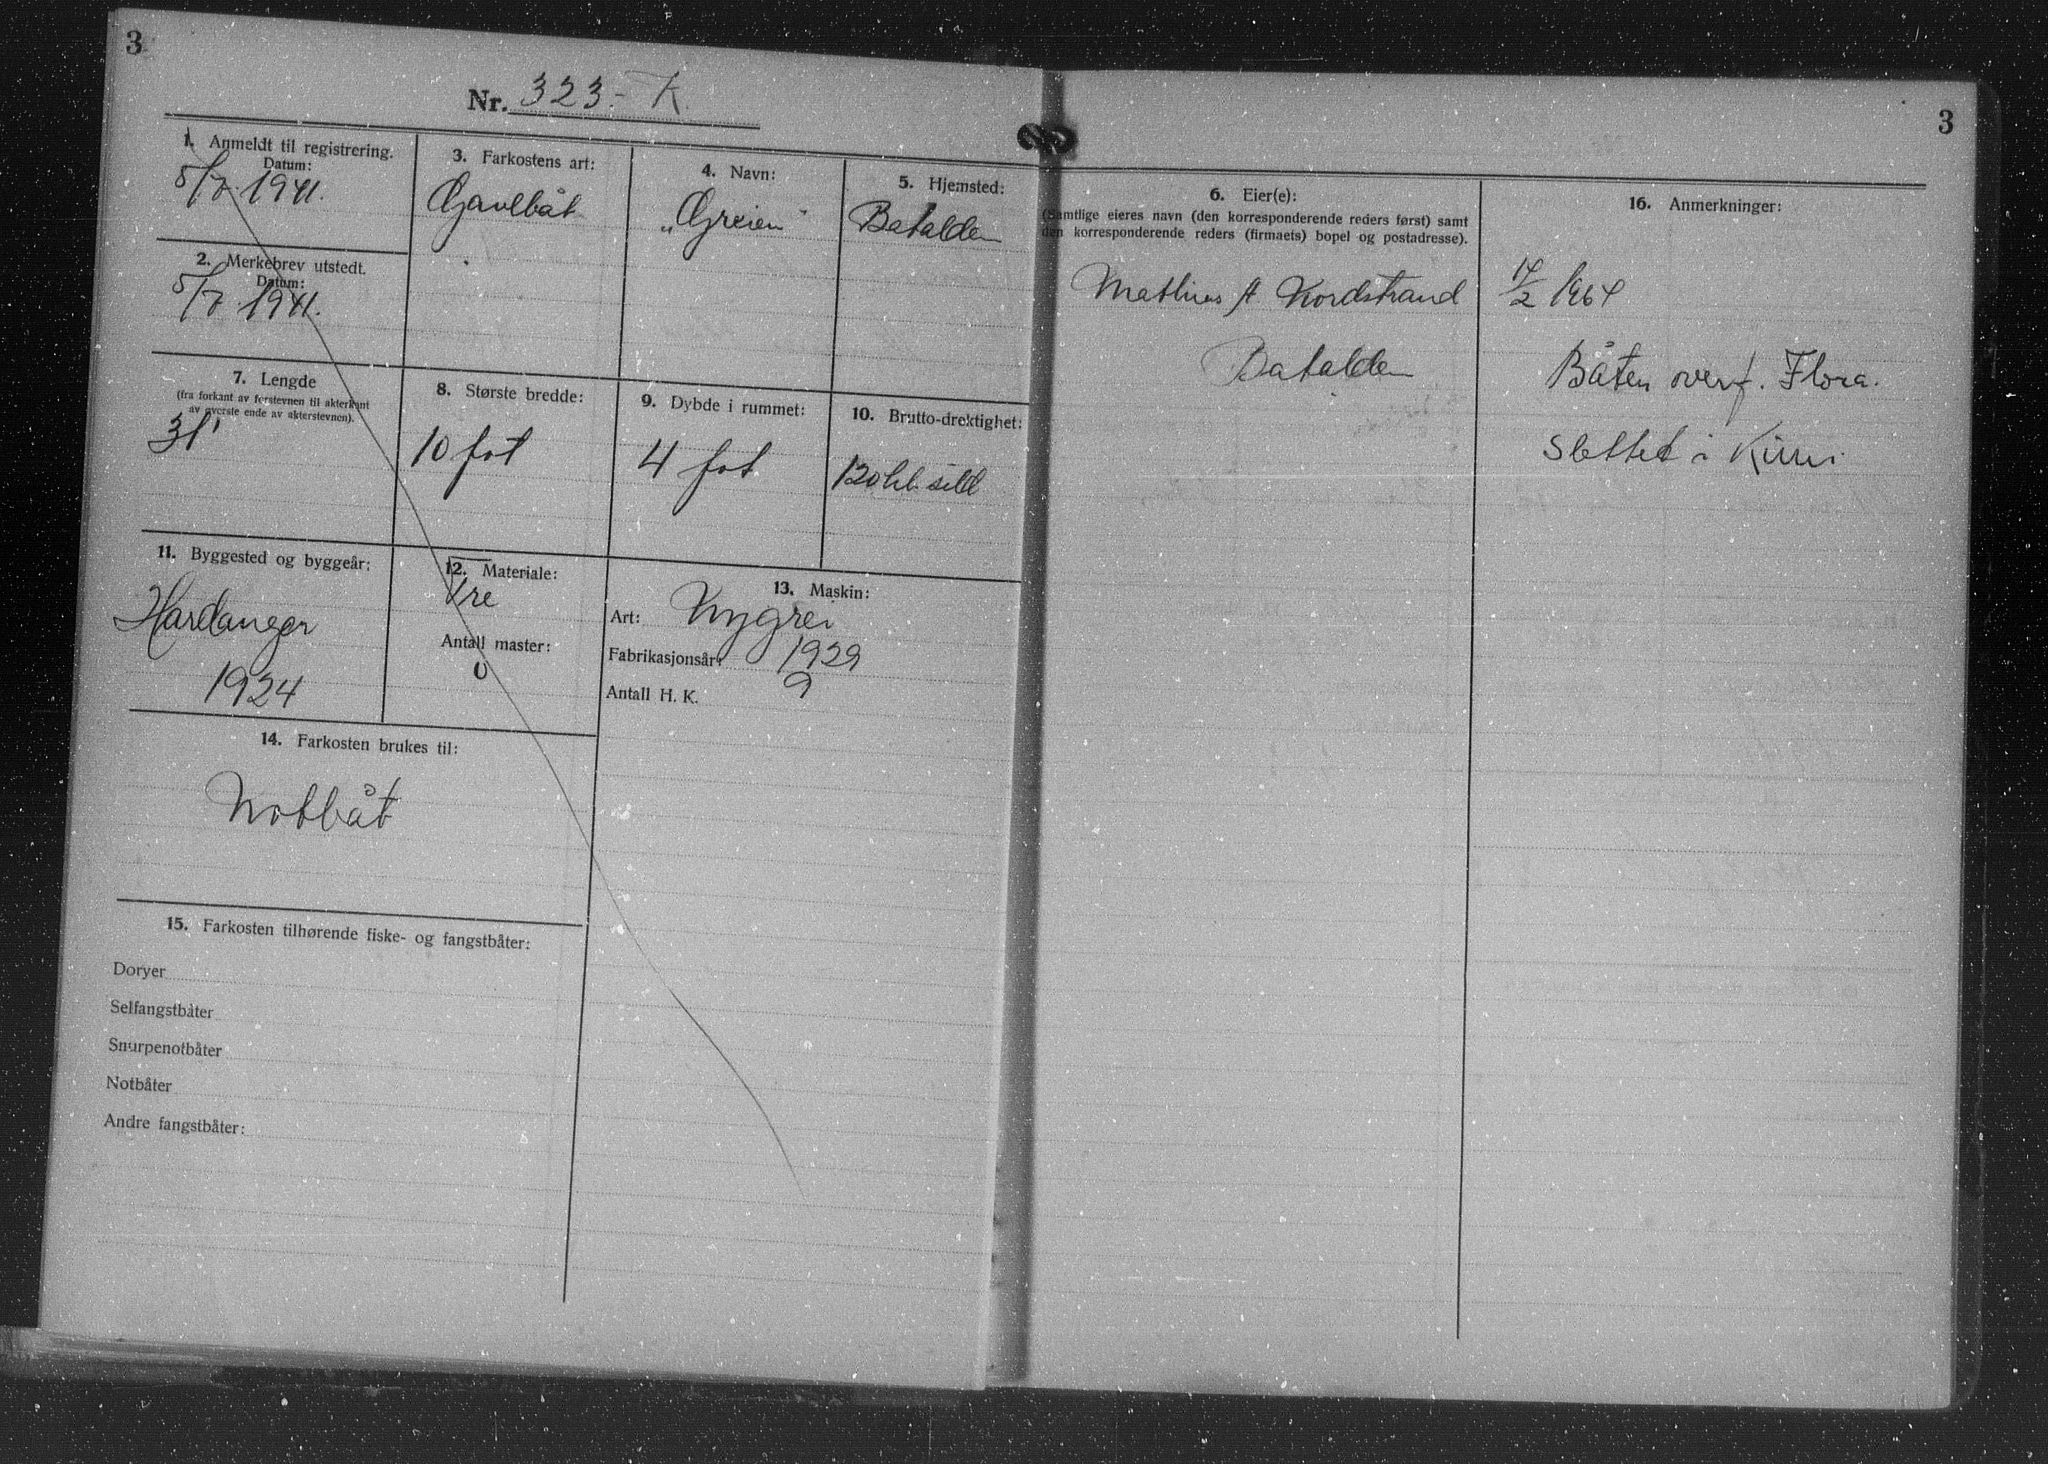 3
Nr. 323.- K.
1. Anmeldt til registrering.
Datum:
5/7. 1941.
2. Merkebrev utstedt.
Datum:
5/7. 1941.
3. Farkostens art:
Gavlbåt
4. Navn:
„Greien"
5. Hjemsted:
Batalden
7. Lengde
(fra forkant av forstevnen til akterkant
av øverste ende av akterstevnen).
31'
8. Største bredde:
10 fot
9. Dybde i rummet:
4 fot
10. Brutto-drektighet:
120 hl. sild
11. Byggested og byggeår:
Hardanger
1924
12. Materiale:
Tre
Antall master:
0
13. Maskin:
Art: Nygrei
Fabrikasjonsår: 1929
Antall H. K. 9
14. Farkosten brukes til:
Notbåt
15. Farkosten tilhørende fiske- og fangstbåter:
Doryer
Selfangstbåter
Snurpenotbåter
Notbåter
Andre fangstbåter:
3
6. Eier(e):
(Samtlige eieres navn (den korresponderende reders først) samt
den korresponderende reders (firmaets) bopel og postadresse).
Mathias A Nordstrand
Batalden
16. Anmerkninger:
17/2 1964
Båten overf. Flora.
Slettet i Kinn